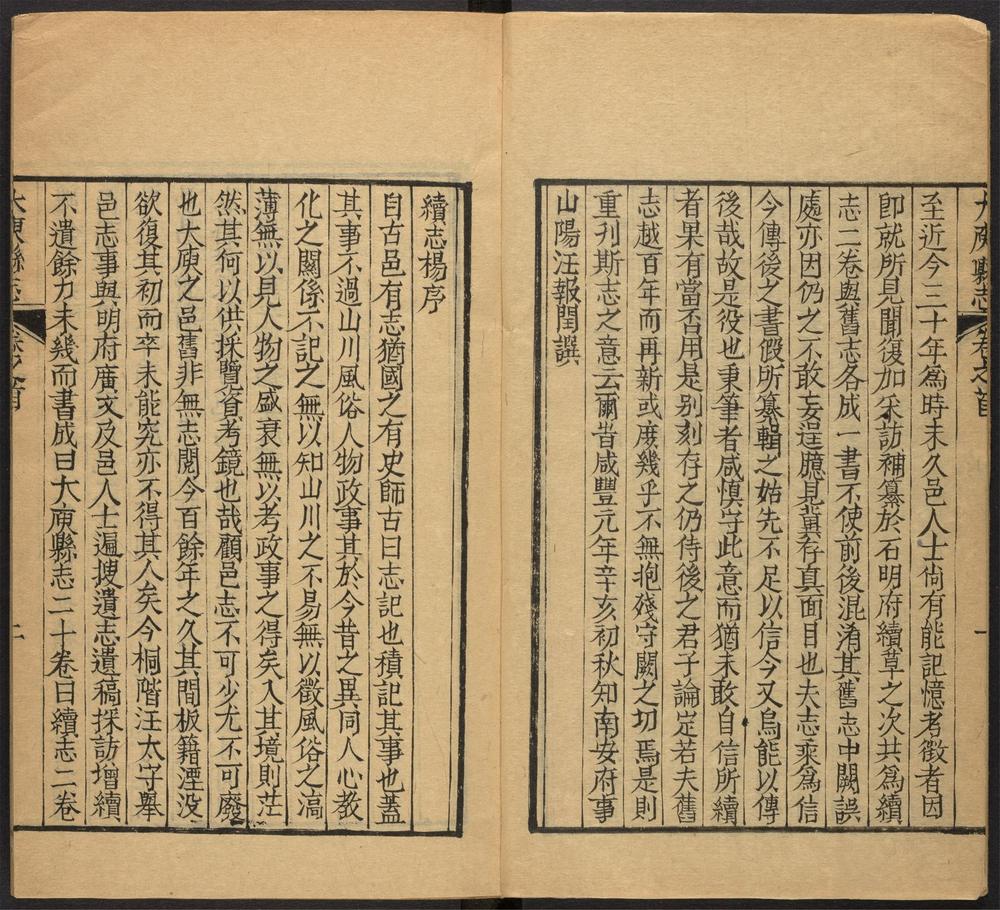 大庾縣志 卷之首 一
至近今三十年為時未久邑人士尙有能記憶考徵者因
卽就所見聞復加采訪補纂於石明府續草之次共為續
志二卷與舊志各成一書不使前後混淆其舊志中闕誤
處亦因仍之不敢妄逞臆見冀存真面目也夫志乘為信
今傳後之書假所纂輯之始先不足以信今又烏能以傳
後哉故是役也秉筆者咸慎守此意而猶未敢自信所續
者果有當否用是別刻存之仍待後之君子論定若夫舊
志越百年而再新或庶幾乎不無抱殘守闕之切焉是則
重刋斯志之意云爾旹咸豐元年辛亥初秋知南安府事
山陽汪報閏譔
續志楊序
自古邑有志猶國之有史師古曰志記也積記其事也蓋
其事不過山川風俗人物政事其於今昔之異同人心敎
化之關係不記之無以知山川之不易無以徵風俗之澆
薄無以見人物之盛衰無以考政事之得失入其境則茫
然其何以供採覽資考鏡也哉顧邑志不可少尤不可廢
也大庾之邑舊非無志閱今百餘年之久其間板籍湮没
欲復其初而卒未能究亦不得其人矣今桐階汪太守舉
邑志事與明府廣文及邑人士遍搜遺志遺稿採訪增續
不遺餘力未幾而書成曰大庾縣志二十卷曰續志二卷
大庾縣志 卷之首 二